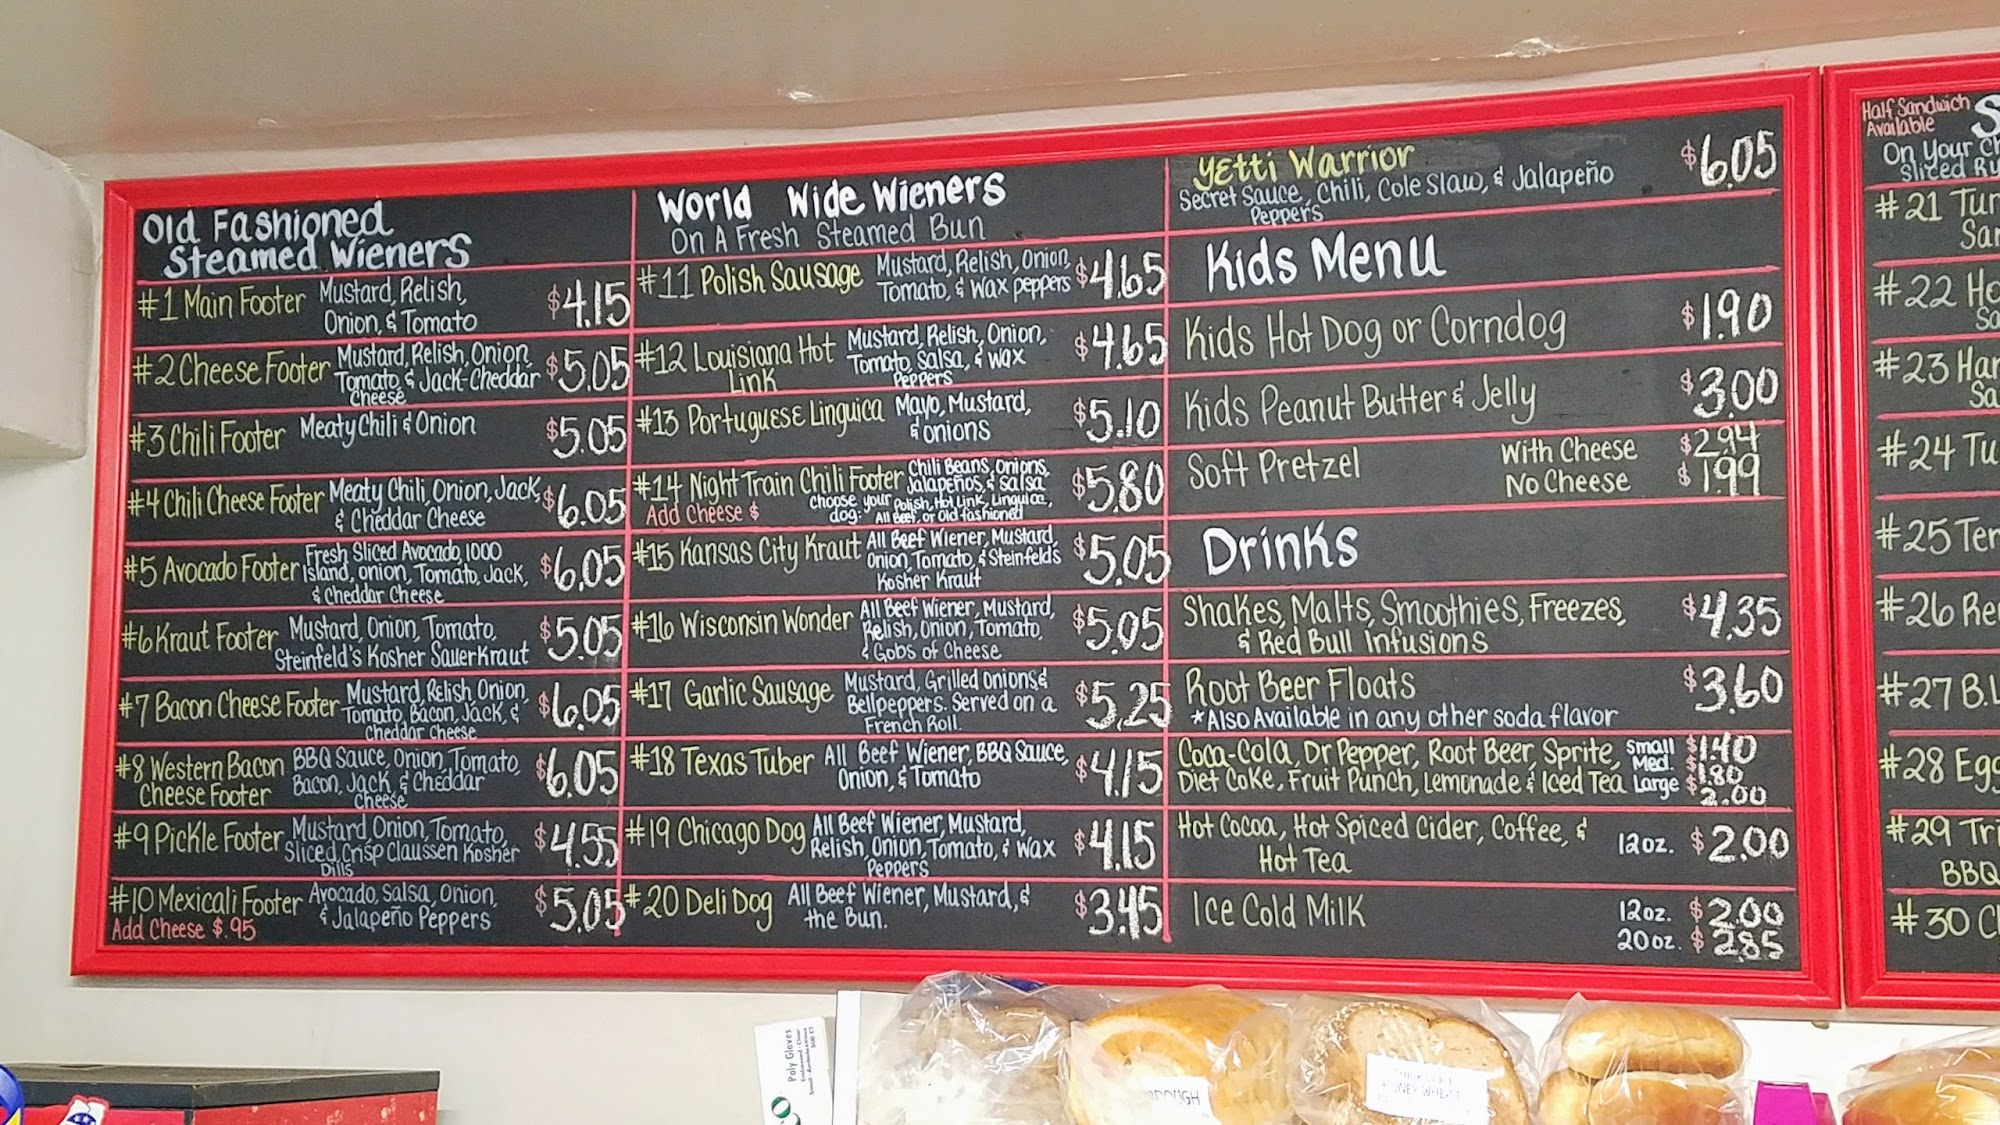 Old Fashioned
Steamed Wieners
#1 Main Footer Mustard, Relish, $4.15
Onion, & Tomato
#2 Cheese Footer Mustard, Relish, Onion, $5.05
Tomato, & Jack-Cheddar
Cheese
#3 Chili Footer Meaty Chili & Onion $5.05
#4 Chili Cheese Footer Meaty Chili, Onion, Jack, $6.05
& Cheddar Cheese
#5 Avocado Footer Fresh Sliced Avocado, 1000 $6.05
island, onion, Tomato, Jack,
& Cheddar Cheese
#6 Kraut Footer Mustard, Onion, Tomato, $5.05
Steinfeld's Kosher Sauerkraut
#7 Bacon Cheese Footer Mustard, Relish, Onion, $6.05
Tomato, Bacon, Jack, &
Cheddar Cheese
#8 Western Bacon BBQ Sauce, Onion, Tomato, $6.05
Cheese Footer Bacon, Jack, & Cheddar
Cheese
#9 Pickle Footer Mustard, Onion, Tomato, $4.55
Sliced, Crisp Claussen Kosher
Dills
#10 Mexicali Footer Avocado, Salsa, Onion, $5.05
Add Cheese $.95 & Jalapeño Peppers
World Wide Wieners
On A Fresh Steamed Bun
#11 Polish Sausage Mustard, Relish, Onion, $4.65
Tomato, & Wax peppers
#12 Louisiana Hot Mustard, Relish, Onion, $4.65
Link Tomato, Salsa, & Wax
Peppers
#13 Portuguese Linguica Mayo, Mustard, $5.10
& onions
#14 Night Train Chili Footer Chili Beans, Onions, $5.80
Jalapeños, & Salsa
Add Cheese $ Choose your Polish, Hot Link, Linguica,
dog: All Beef, or Old fashioned
#15 Kansas City Kraut All Beef Wiener, Mustard, $5.05
Onion, Tomato, & Steinfeld's
Kosher Kraut
#16 Wisconsin Wonder All Beef Wiener, Mustard, $5.05
Relish, Onion, Tomato,
& Gobs of Cheese
#17 Garlic Sausage Mustard, Grilled onions & $5.25
Bellpeppers. Served on a
French Roll.
#18 Texas Tuber All Beef Wiener, BBQ Sauce, $4.15
Onion, & Tomato
#19 Chicago Dog All Beef Wiener, Mustard, $4.15
Relish, Onion, Tomato, & Wax
Peppers
#20 Deli Dog All Beef Wiener, Mustard, & $3.45
the Bun.
Yetti Warrior $6.05
Secret Sauce, Chili, Cole Slaw, & Jalapeño
Peppers
Kids Menu
Kids Hot Dog or Corndog $1.90
Kids Peanut Butter & Jelly $3.00
Soft Pretzel With Cheese $2.94
No Cheese $1.99
Drinks
Shakes, Malts, Smoothies, Freezes, $4.35
& Red Bull Infusions
Root Beer Floats $3.60
*Also Available in any other soda flavor
Coca-Cola, Dr Pepper, Root Beer, Sprite, Small $1.40
Med. $1.80
Diet Coke, Fruit Punch, Lemonade & Iced Tea Large $2.00
Hot Cocoa, Hot Spiced Cider, Coffee, & 12oz. $2.00
Hot Tea
Ice Cold Milk 12oz. $2.00
20oz. $2.85
Half Sandwich
Available
On Your
Sliced
#21
#22
#23
#24
#25
#26
#27
#28
#29
BBQ
#30
Poly Gloves